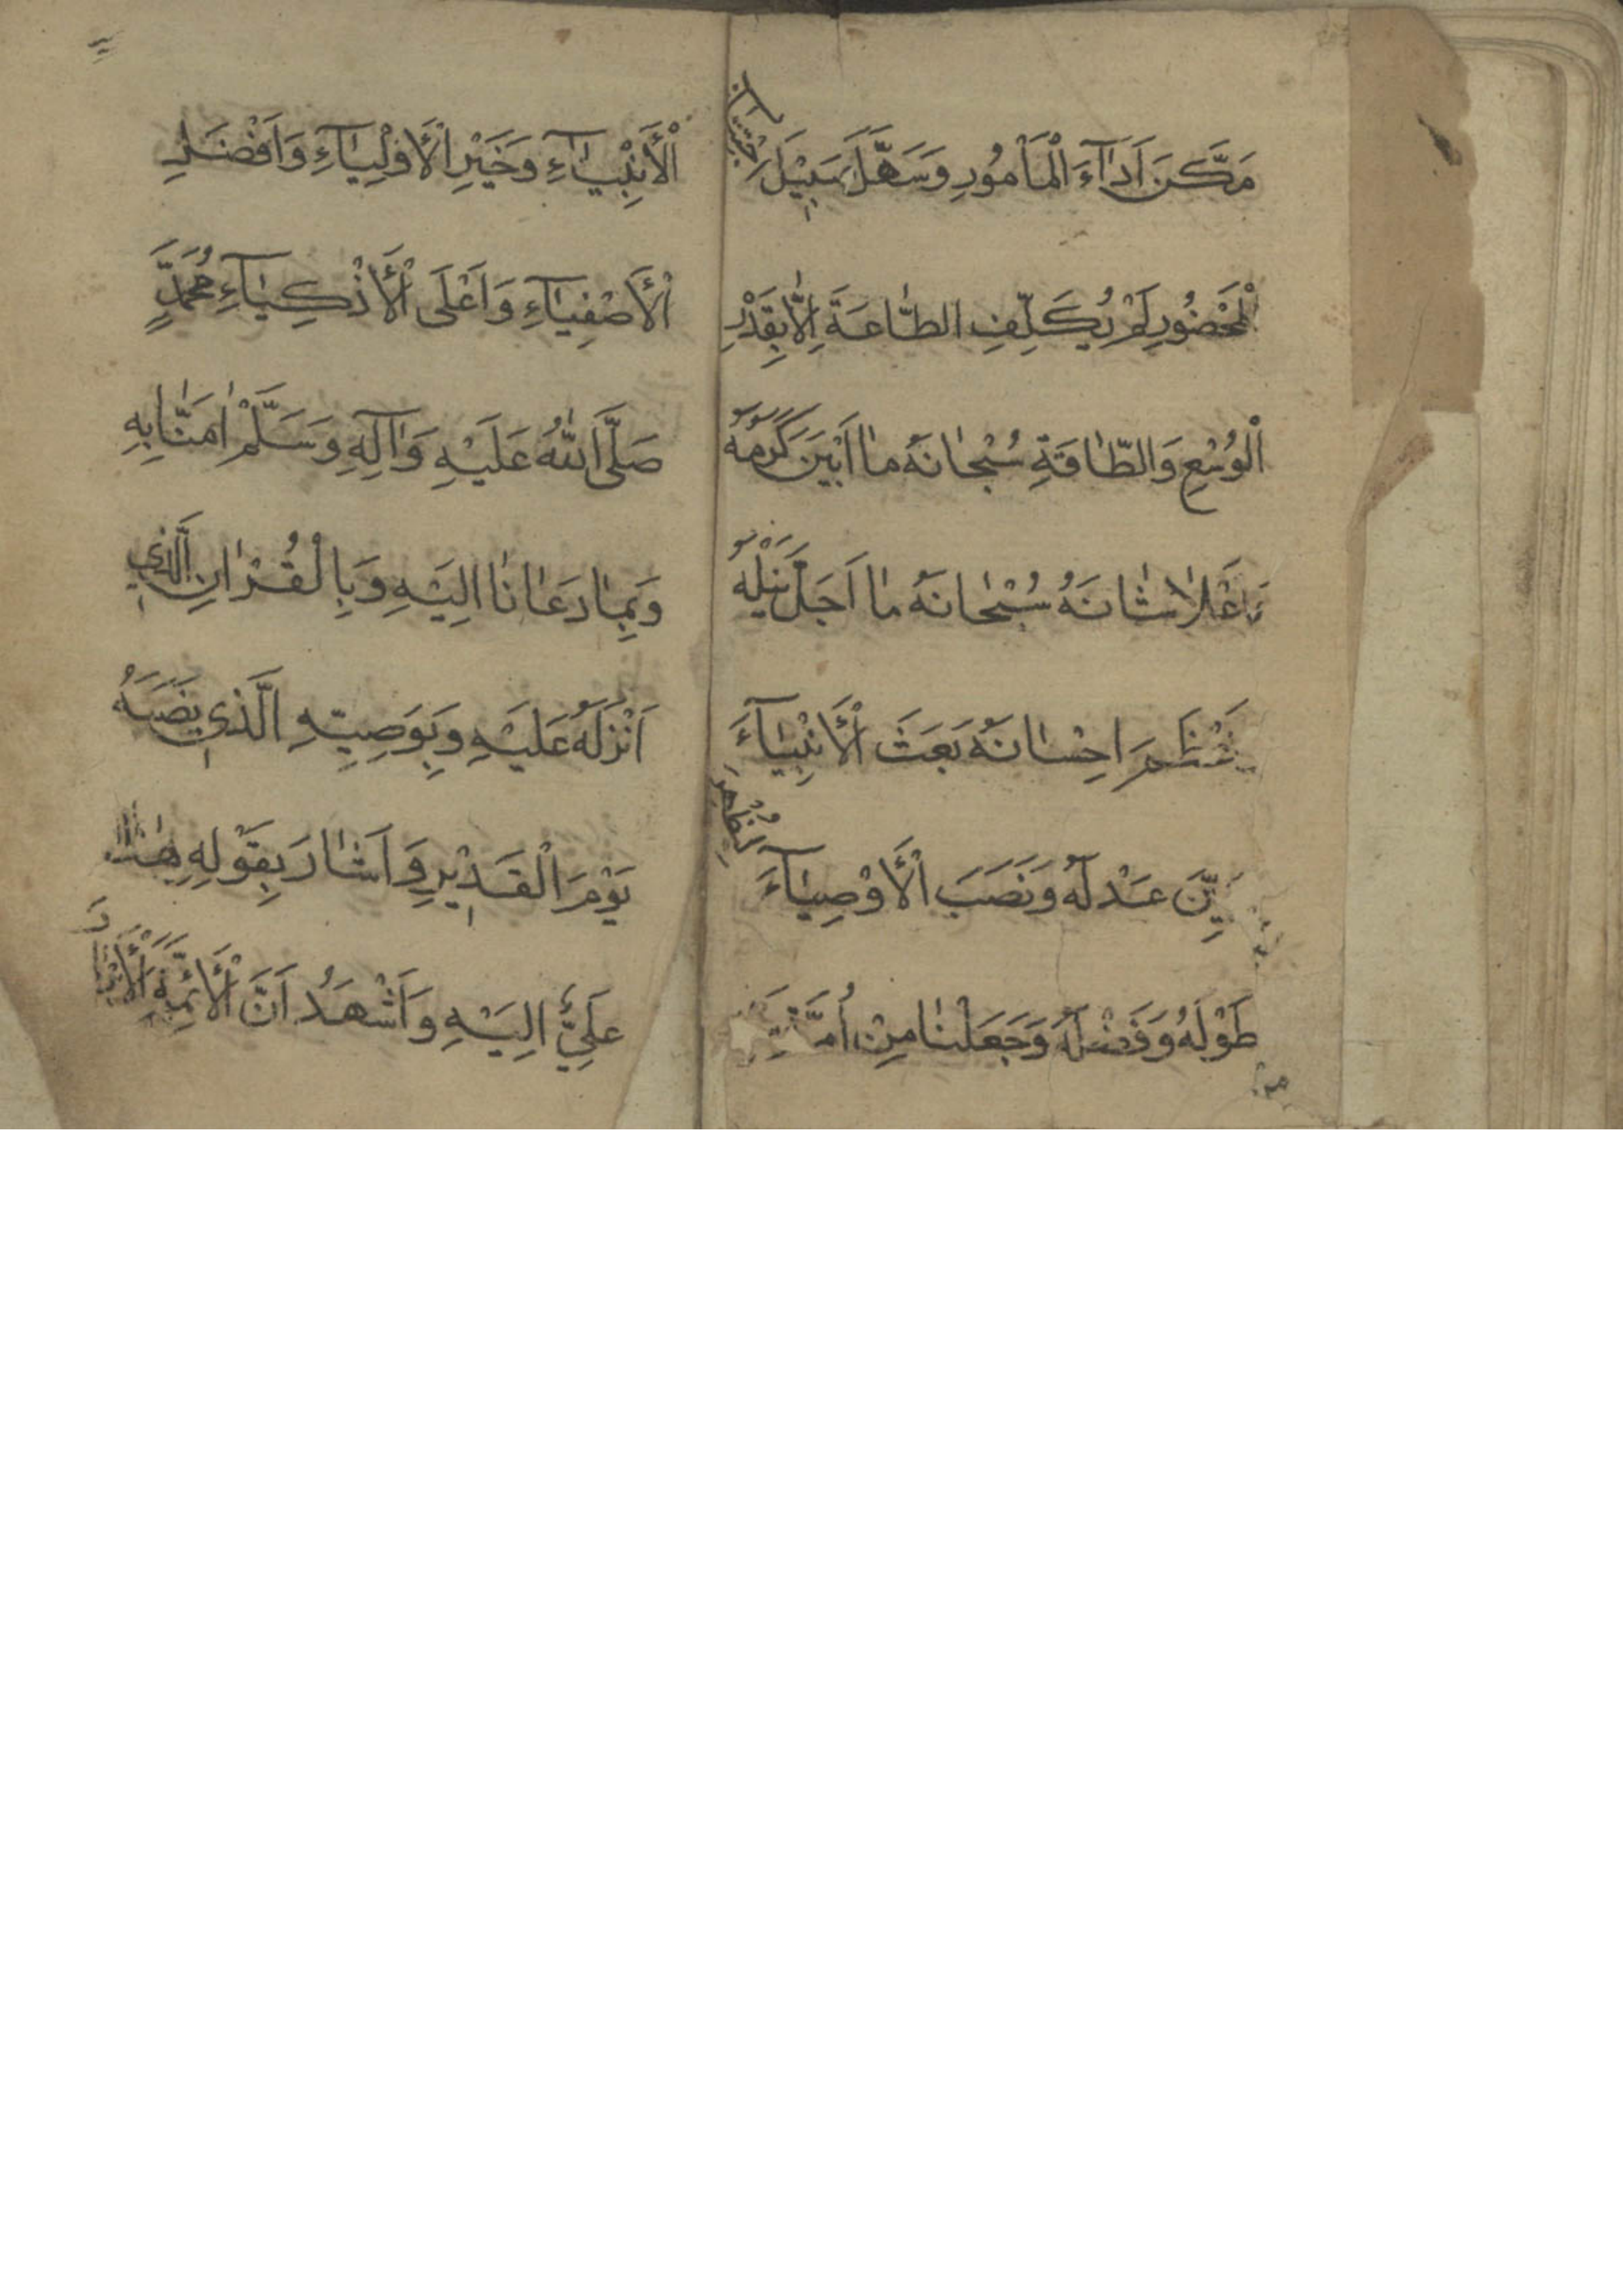 مَكَّنَ اَدَآءَ الْمَاْمُورِ وَسَهَّلَ سَبِيْلَ اجْتِنَابِ
الْمَحْضُورِ لَمْ يُكَلِّفِ الطَّاعَةَ اِلَّا بِقَدْرِ
الْوُسْعِ وَالطَّاقَةِ سُبْحَانَهُ مَا اَبْيَنَ كَرَمَهُ
وَاَعْلَا شَانَهُ سُبْحَانَهُ مَا اَجَلَّ نَيْلَهُ
اِحْسَانَهُ بَعَثَ الْأَنْبِيَآءَ
عَدْلَهُ وَنَصَبَ الْأَوْصِيَآءَ لِيُظْهِرَ
طَوْلَهُ وَفَضْلَهُ وَجَعَلْنَا مِنْ اُمَّةِ
الْأَنْبِيَآءِ وَخَيْرِ الْأَوْلِيَآءِ وَاَفْضَلِ
الْأَصْفِيَآءِ وَاَعْلَى الْأَذْكِيَآءِ مُحَمَّدٍ
صَلَّى اللهُ عَلَيْهِ وَاٰلِهِ وَسَلَّمْ اٰمَنَّا بِهِ
وَبِمَا دَعَانَا اِلَيْهِ وَبِالْقُرْاٰنِ الَّذِي
اَنْزَلَهُ عَلَيْهِ وَبِوَصِيِّهِ الَّذِي نَصَبَهُ
يَوْمَ الْغَدِيْرِ وَاَشَارَ بِقَوْلِهِ هٰذَا
عَلِيٌّ اِلَيْهِ وَاَشْهَدُ اَنَّ الْأَئِمَّةَ الْأَبْرَارَ